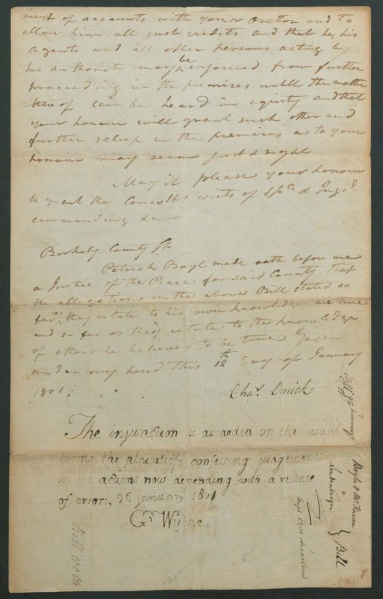 ment of accounts with your Orator and to
allow him all just credits and that he, his
agents and all other persons acting by
his authority may be injoined from further
proceeding in the premises untill the matter
thereof can be heard in equity and that
your honour will grant such other and
further relief in the premises as to your
honour may seem just & right
May it please your honour
to grant the Comwlths writs of Spa. & Injn.
commanding &c
Berkely County Sc
Patrick made oath before me
a Justice of the Peace for said County that
the allegations in the above Bill stated so
far as they relate to his own knowledge are true
and so far as they relate to the knowledge
of others he believes to be true Given
under my hand this 12th day of January
1801.
Chas.
The injunction is awarded on the usual
terms, the plaintiffs confessing judgements
in the actions now depending with a release
of errors. 26 January 1801
G. Wythe
Bill